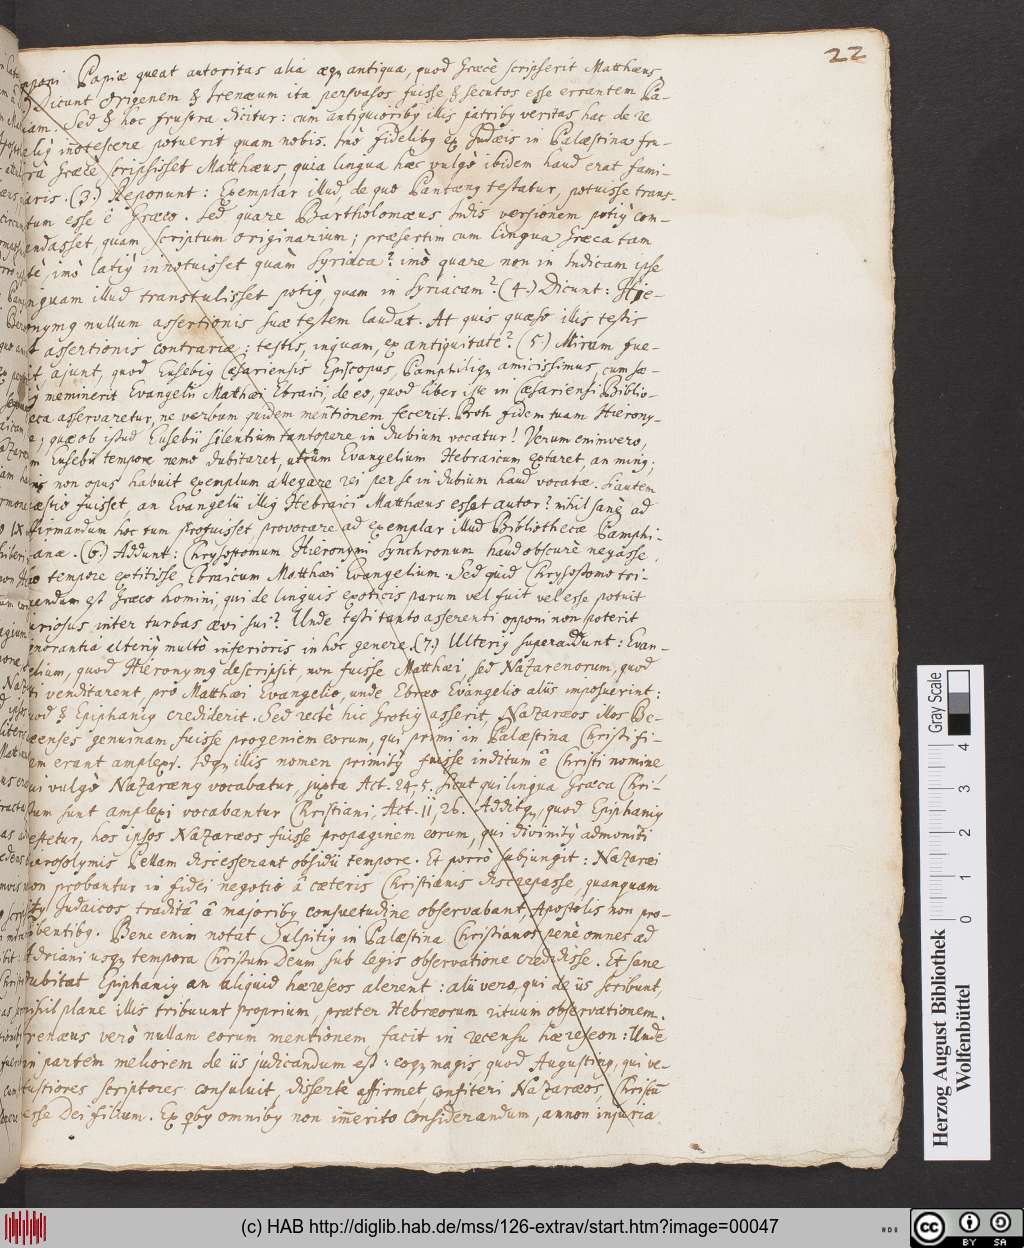 22
opponi Papiæ queat autoritas alia æq; antiqua, quod Græcè scripserit Matthæus.
Dicunt Origenem & Irenæum ita persvasos fuisse & secutos esse errantem Pa-
piam. Sed & hoc frustra dicitur: cum antiquioribq illis patribq veritas hac de re
meliq innotescere potuerit quam nobis. Imò fidelibq ex Judæis in Palæstina fru-
strà Græcè scripsisset Matthæus, quia lingua hæc vulgò ibidem haud erat fami-
liaris. (3.) Reponunt: Exemplar illud, de quo Pantænq testatur, potuisse trans-
latum esse è Græco. Sed quare Bartholomæus Indis versionem potiq com-
mendasset, quam scriptum originarium; præsertim cum lingua Græca tam
latè, imò latiq innotuisset quàm Syriaca? imò quare non in Indicam ipse
linguam illud transtulisset potiq, quam in Syriacam? (4.) Dicunt: Hie-
ronymq nullum assertionis suæ testem laudat. At quis quæso illis testis
est assertionis contrariæ; testis, inquam, ex antiquitate? (5.) Mirum fue-
rit, ajunt, quod Eusebiq Cæsariensis Episcopus, Pamphiliq; amicissimus, cum sæ-
piq meminerit Evangelii Matthæi Ebraici, de eo, quod liber iste in Cæsariensi Biblio-
theca asservaretur, ne verbum quidem mentionem fecerit. Proh fidem tuam Hierony-
me; quæ ob istud Eusebii silentium tantopere in dubium vocatur! Verum enimvero,
cum Eusebii tempore nemo dubitaret, utrum Evangelium Hebraicum extaret, an minq;
non opus habuit exemplum allegare rei per se in dubium haud vocatæ. Si autem
quæstio fuisset, an Evangelii illiq Hebraici Matthæus esset autor? nihil sanè ad
affirmandum hoc tum profuisset, provocare ad exemplar illud Bibliothecæ Pamphi-
lianæ. (6.) Addunt: Chrysostomum Hieronymi Synchronum haud obscurè negasse,
suo tempore extitisse Ebraicum Matthæi Evangelium. Sed quid Chrysostomo tri-
buendum est Græco homini, qui de linguis exoticis parum vel fuit vel esse potuit
curiosus inter turbas ævi sui? Unde testi tanto asserenti opponi non poterit
ignorantia alteriq multò inferioris in hoc genere. (7.) Ulteriq superaddunt: Evan-
gelium, quod Hieronymq descripsit, non fuisse Matthæi sed Nazarenorum, quod
isti venditarent, pro Matthæi Evangelio, unde Ebræo Evangelio aliis imposuerint;
quod & Epiphaniq crediderit. Sed rectè hic Grotiq asserit, Nazaræos illos Be-
rœenses genuinam fuisse progeniem eorum, qui primi in Palæstina Christi fi-
dem erant amplexi. Idq; illis nomen primitq fuisse inditum è Christi nomine
qui vulgò Nazarænq vocabatur, juxta Act. 24, 5. sicut qui lingua Græca Chri-
stum sunt amplexi vocabantur Christiani, Act. 11, 26. Additq;, quod Epiphaniq
testetur, hos ipsos Nazaræos fuisse propaginem eorum, qui divinitq admoniti
Hierosolymis Pellam discesserant obsidii tempore. Et porrò subjungit: Nazaræi
non probantur in fidei negotio â cæteris Christianis discrepasse, quanquam
ritq Judaicos traditâ â majoribq consuetudine observabant, Apostolis non pro-
hibentibq. Bene enim notat Sulpitiq in Palæstina Christianos penè omnes ad
Adriani usq; tempora Christum Deum sub legis observatione credidisse. Et sane
dubitat Epiphaniq an aliquid hæreseos alerent: alii vero, qui de iis scribunt,
nihil plane illis tribuunt proprium, præter Hebræorum rituum observationem.
Irenæus verò nullam eorum mentionem facit in recensu hæreseon: Unde
in partem meliorem de iis judicandum est: eoq; magis quod Augustinq, qui ve-
tustiores scriptores consuluit, disertè affirmet, confiteri Nazaræos, Christū
esse Dei filium. Ex qbq omnibq non im̄erito considerandum, annon injuria
Gray Scale
0 1 2 3 4
Herzog August Bibliothek
Wolfenbüttel
(c) HAB http://diglib.hab.de/mss/126-extrav/start.htm?image=00047
cc BY SA